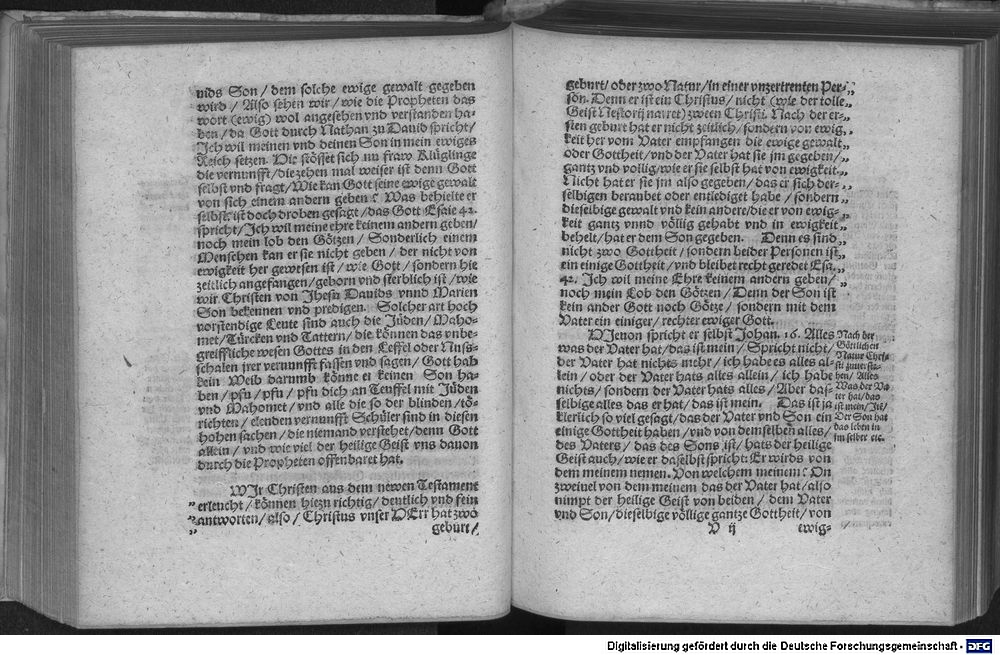 uids Son / dem solche ewige gewalt gegeben
wird / Also sehen wir / wie die Propheten das
wort (ewig) wol angesehen vnd verstanden ha-
ben / da Gott durch Nathan zu Dauid spricht /
Ich wil meinen vnd deinen Son in mein ewiges
Reich setzen. Die stösset sich nu fraw Klüglinge
die vernunfft / die zehen mal weiser ist denn Gott
selbst vnd fragt / Wie kan Gott seine ewige gewalt
von sich einem andern geben? Was behielte er
selbst, ist doch droben gesagt / das Gott Esaie 42.
spricht / Ich wil meine ehre keinem andern geben /
noch mein lob den Götzen / Sonderlich einem
Menschen kan er sie nicht geben / der nicht von
ewigkeit her gewesen ist / wie Gott / sondern hie
zeitlich angefangen / geborn vnd sterblich ist / wie
wir Christen von Jhesu Dauids vnnd Marien
Son bekennen vnd predigen. Solcher art hoch
vorstendige Leute sind auch die Jüden / Maho-
met / Türcken vnd Tattern / die können das vnbe-
greiffliche wesen Gottes in den Leffel oder Nuss-
schalen jrer vernunfft fassen vnd sagen / Gott hab
kein Weib darumb könne er keinen Son ha-
ben / pfu / pfu / pfu dich an Teuffel mit Jüden
vnd Mahomet / vnd alle die so der blinden / tö-
richten / elenden vernunfft Schüler sind in diesen
hohen sachen / die niemand verstehet / denn Gott
allein / vnd wie viel der heilige Geist vns dauon
durch die Propheten offenbaret hat.
WIr Christen aus dem newen Testament
erleucht / können hiezu richtig / deutlich vnd fein
antworten / also / Christus vnser HErr hat zwo
geburt /
geburt / oder zwo Natur / in einer vnzertrenten Per-
son. Denn er ist ein Christus / nicht (wie der tolle
Geist Nestorij narret) zween Christi. Nach der er-
sten geburt hat er nicht zeitlich / sondern von ewig-
keit her vom Vater empfangen die ewige gewalt
oder Gottheit / vnd der Vater hat sie jm gegeben /
gantz vnd völlig / wie er sie selbst hat von ewigkeit.
Nicht hat er sie jm also gegeben / das er sich der-
selbigen beraubet oder entlediget habe / sondern
dieselbige gewalt vnd kein andere / die er von ewig-
keit gantz vnnd völlig gehabt vnd in ewigkeit
behelt / hat er dem Son gegeben. Denn es sind
nicht zwo Gottheit / sondern beider Personen ist
ein einige Gottheit / vnd bleibet recht geredet Esa.
42. Ich wil meine Ehre keinem andern geben /
noch mein Lob den Götzen / Denn der Son ist
kein ander Gott noch Götze / sondern mit dem
Vater ein einiger / rechter ewiger Gott.
DIeuon spricht er selbst Johan. 16. Alles
was der Vater hat / das ist mein / Spricht nicht /
der Vater hat nichts mehr / ich habe es alles al-
lein / oder der Vater hats alles allein / ich habe
nichts / sondern der Vater hats alles / Aber das-
selbige alles das er hat / das ist mein. Das ist ja
klerlich so viel gesagt / das der Vater vnd Son ein
einige Gottheit haben / vnd von demselben alles /
des Vaters / das des Sons ist / hats der heilige
Geist auch / wie er daselbst spricht: Er wirds von
dem meinem nemen. Von welchem meinem? On
zweiuel von dem meinem das der Vater hat / also
nimpt der heilige Geist von beiden / dem Vater
vnd Son / dieselbige völlige gantze Gottheit / von
D ij ewig-
Nach der
Göttlichen
Natur Christi
zuuerste-
hen / Alles
Was der Va-
ter hat / das
ist mein / Jtē
Der Son hat
das leben in
jm selber etc.
Digitalisierung gefördert durch die Deutsche Forschungsgemeinschaft - DFG